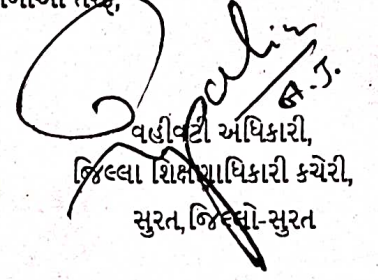 તરફ,
વહીવટી અધિકારી,
જિલ્લા શિક્ષણાધિકારી કચેરી,
સુરત,જિલ્લો-સુરત